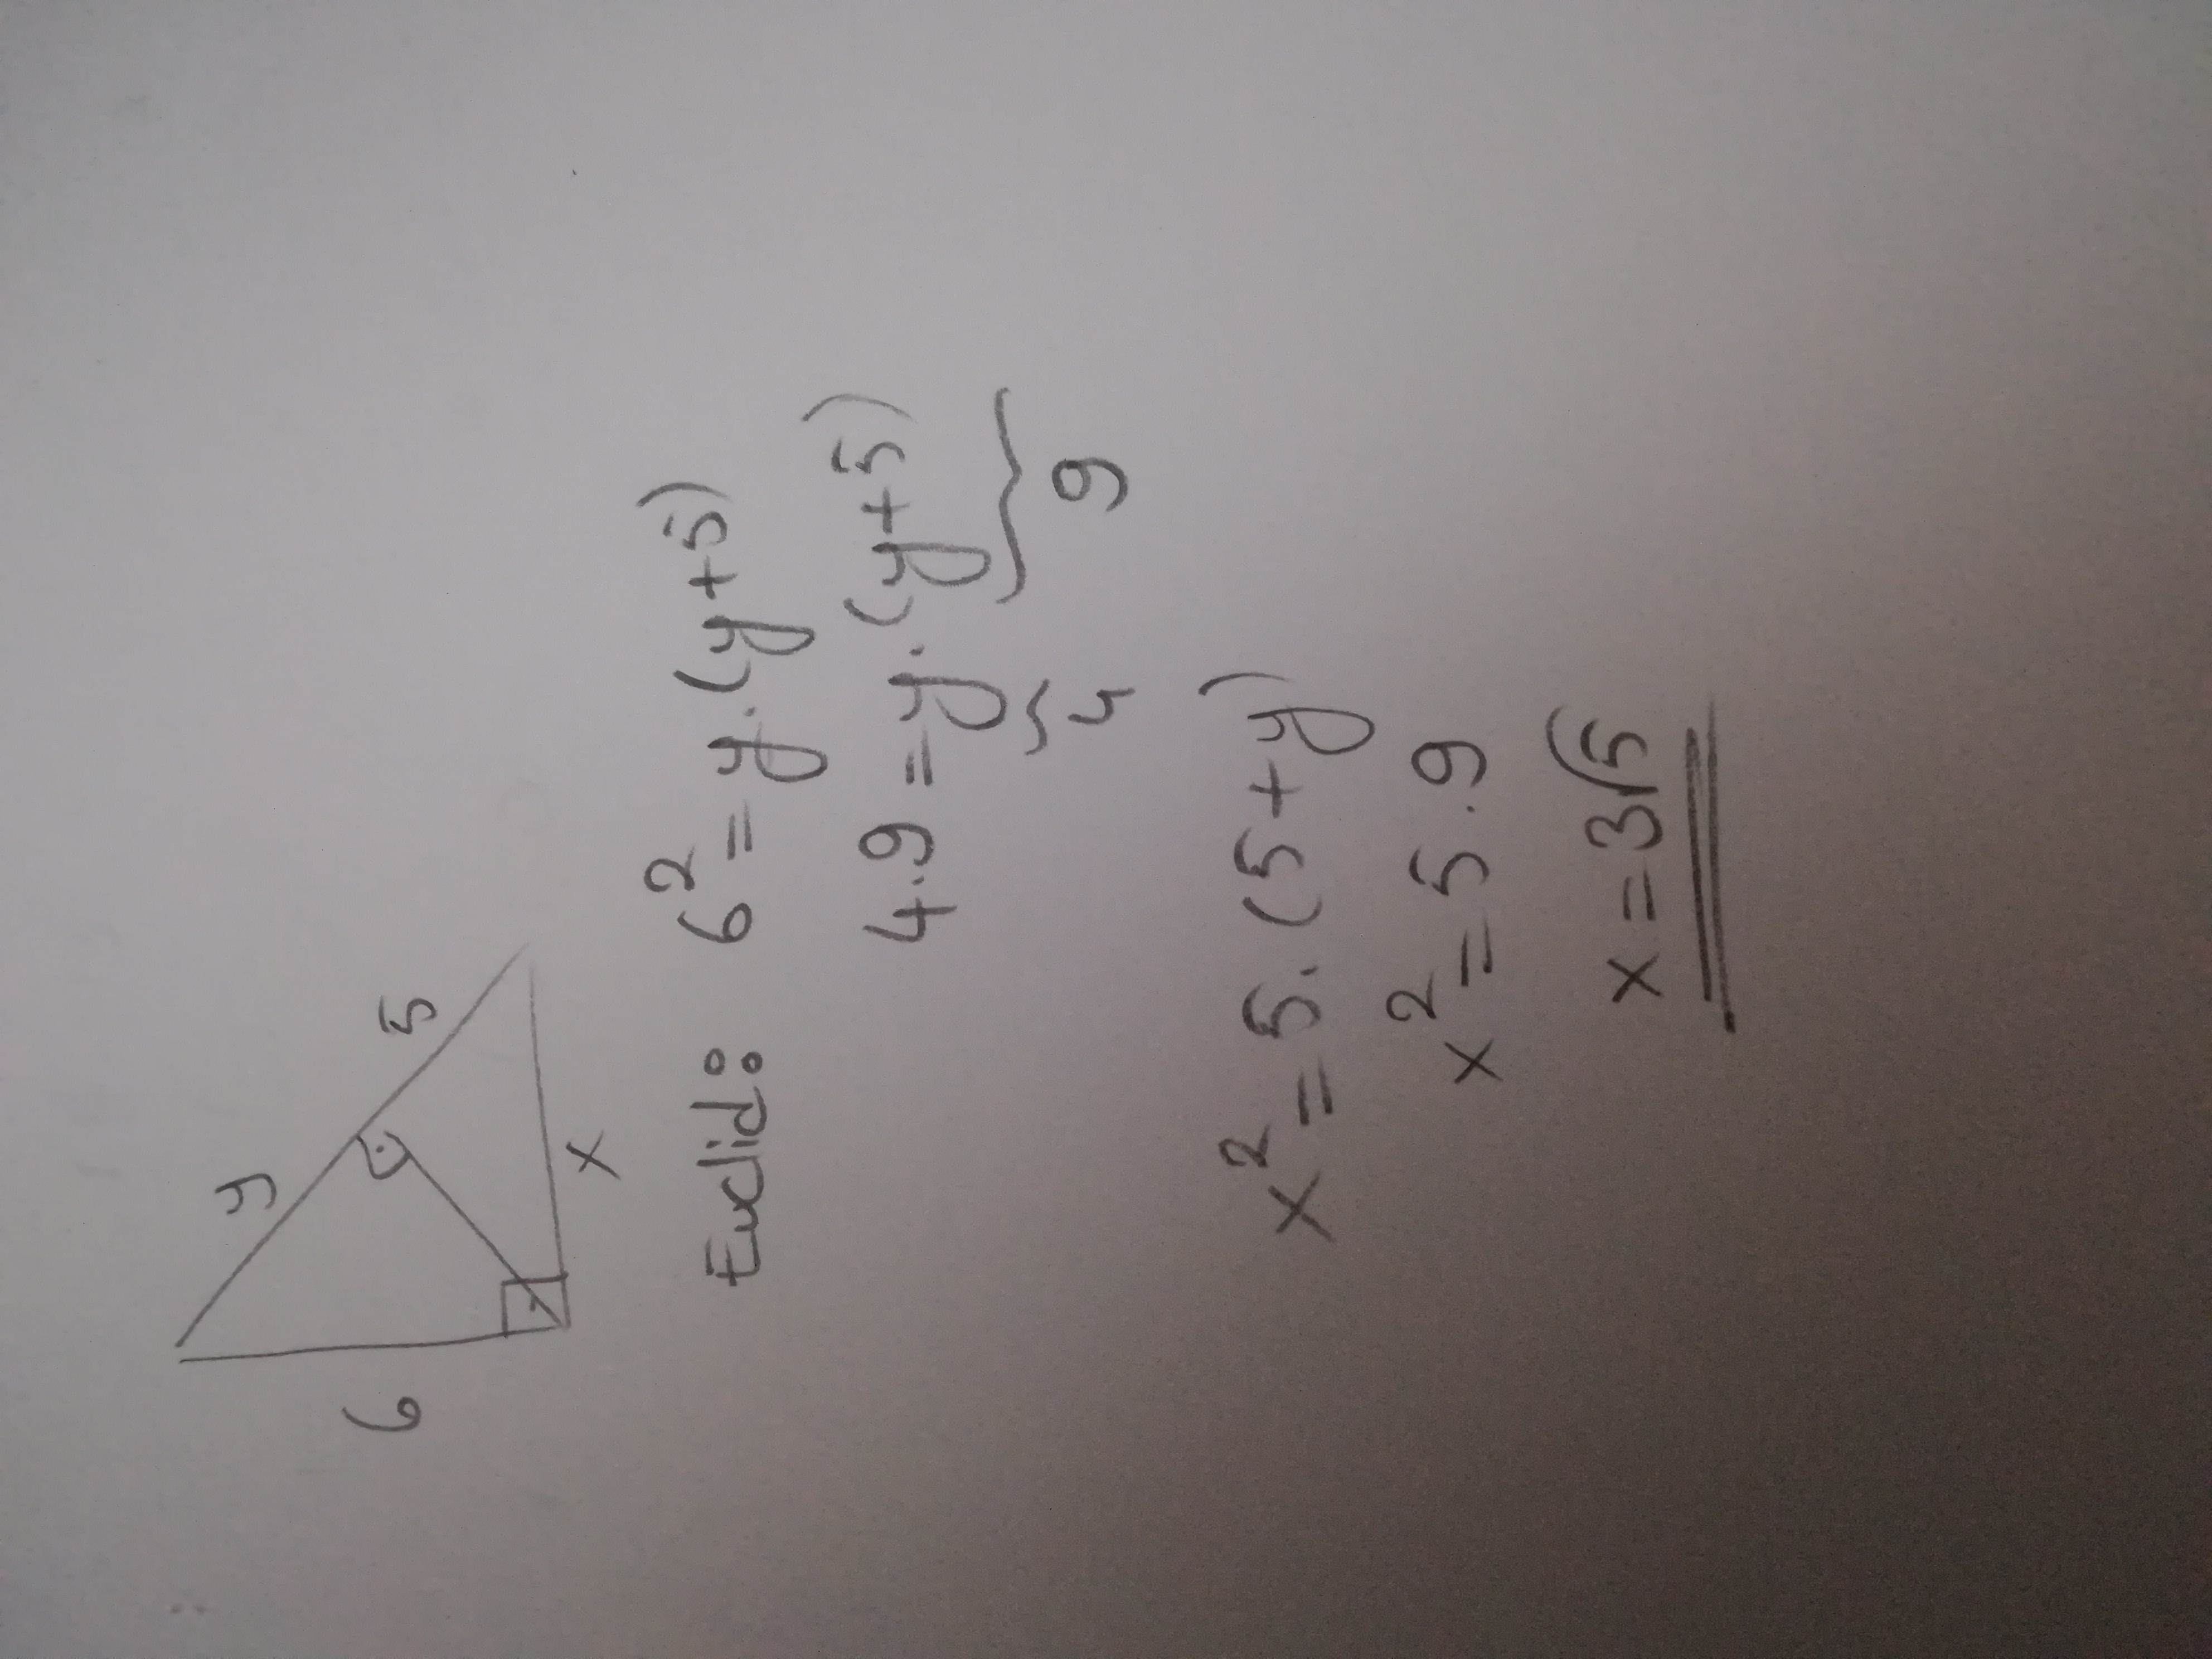 y
5
6
x
Euclid: 6² = y.(y+5)
4.9 = y.(y+5)
4 9
x² = 5.(5+y)
x² = 5.9
x = 3√5